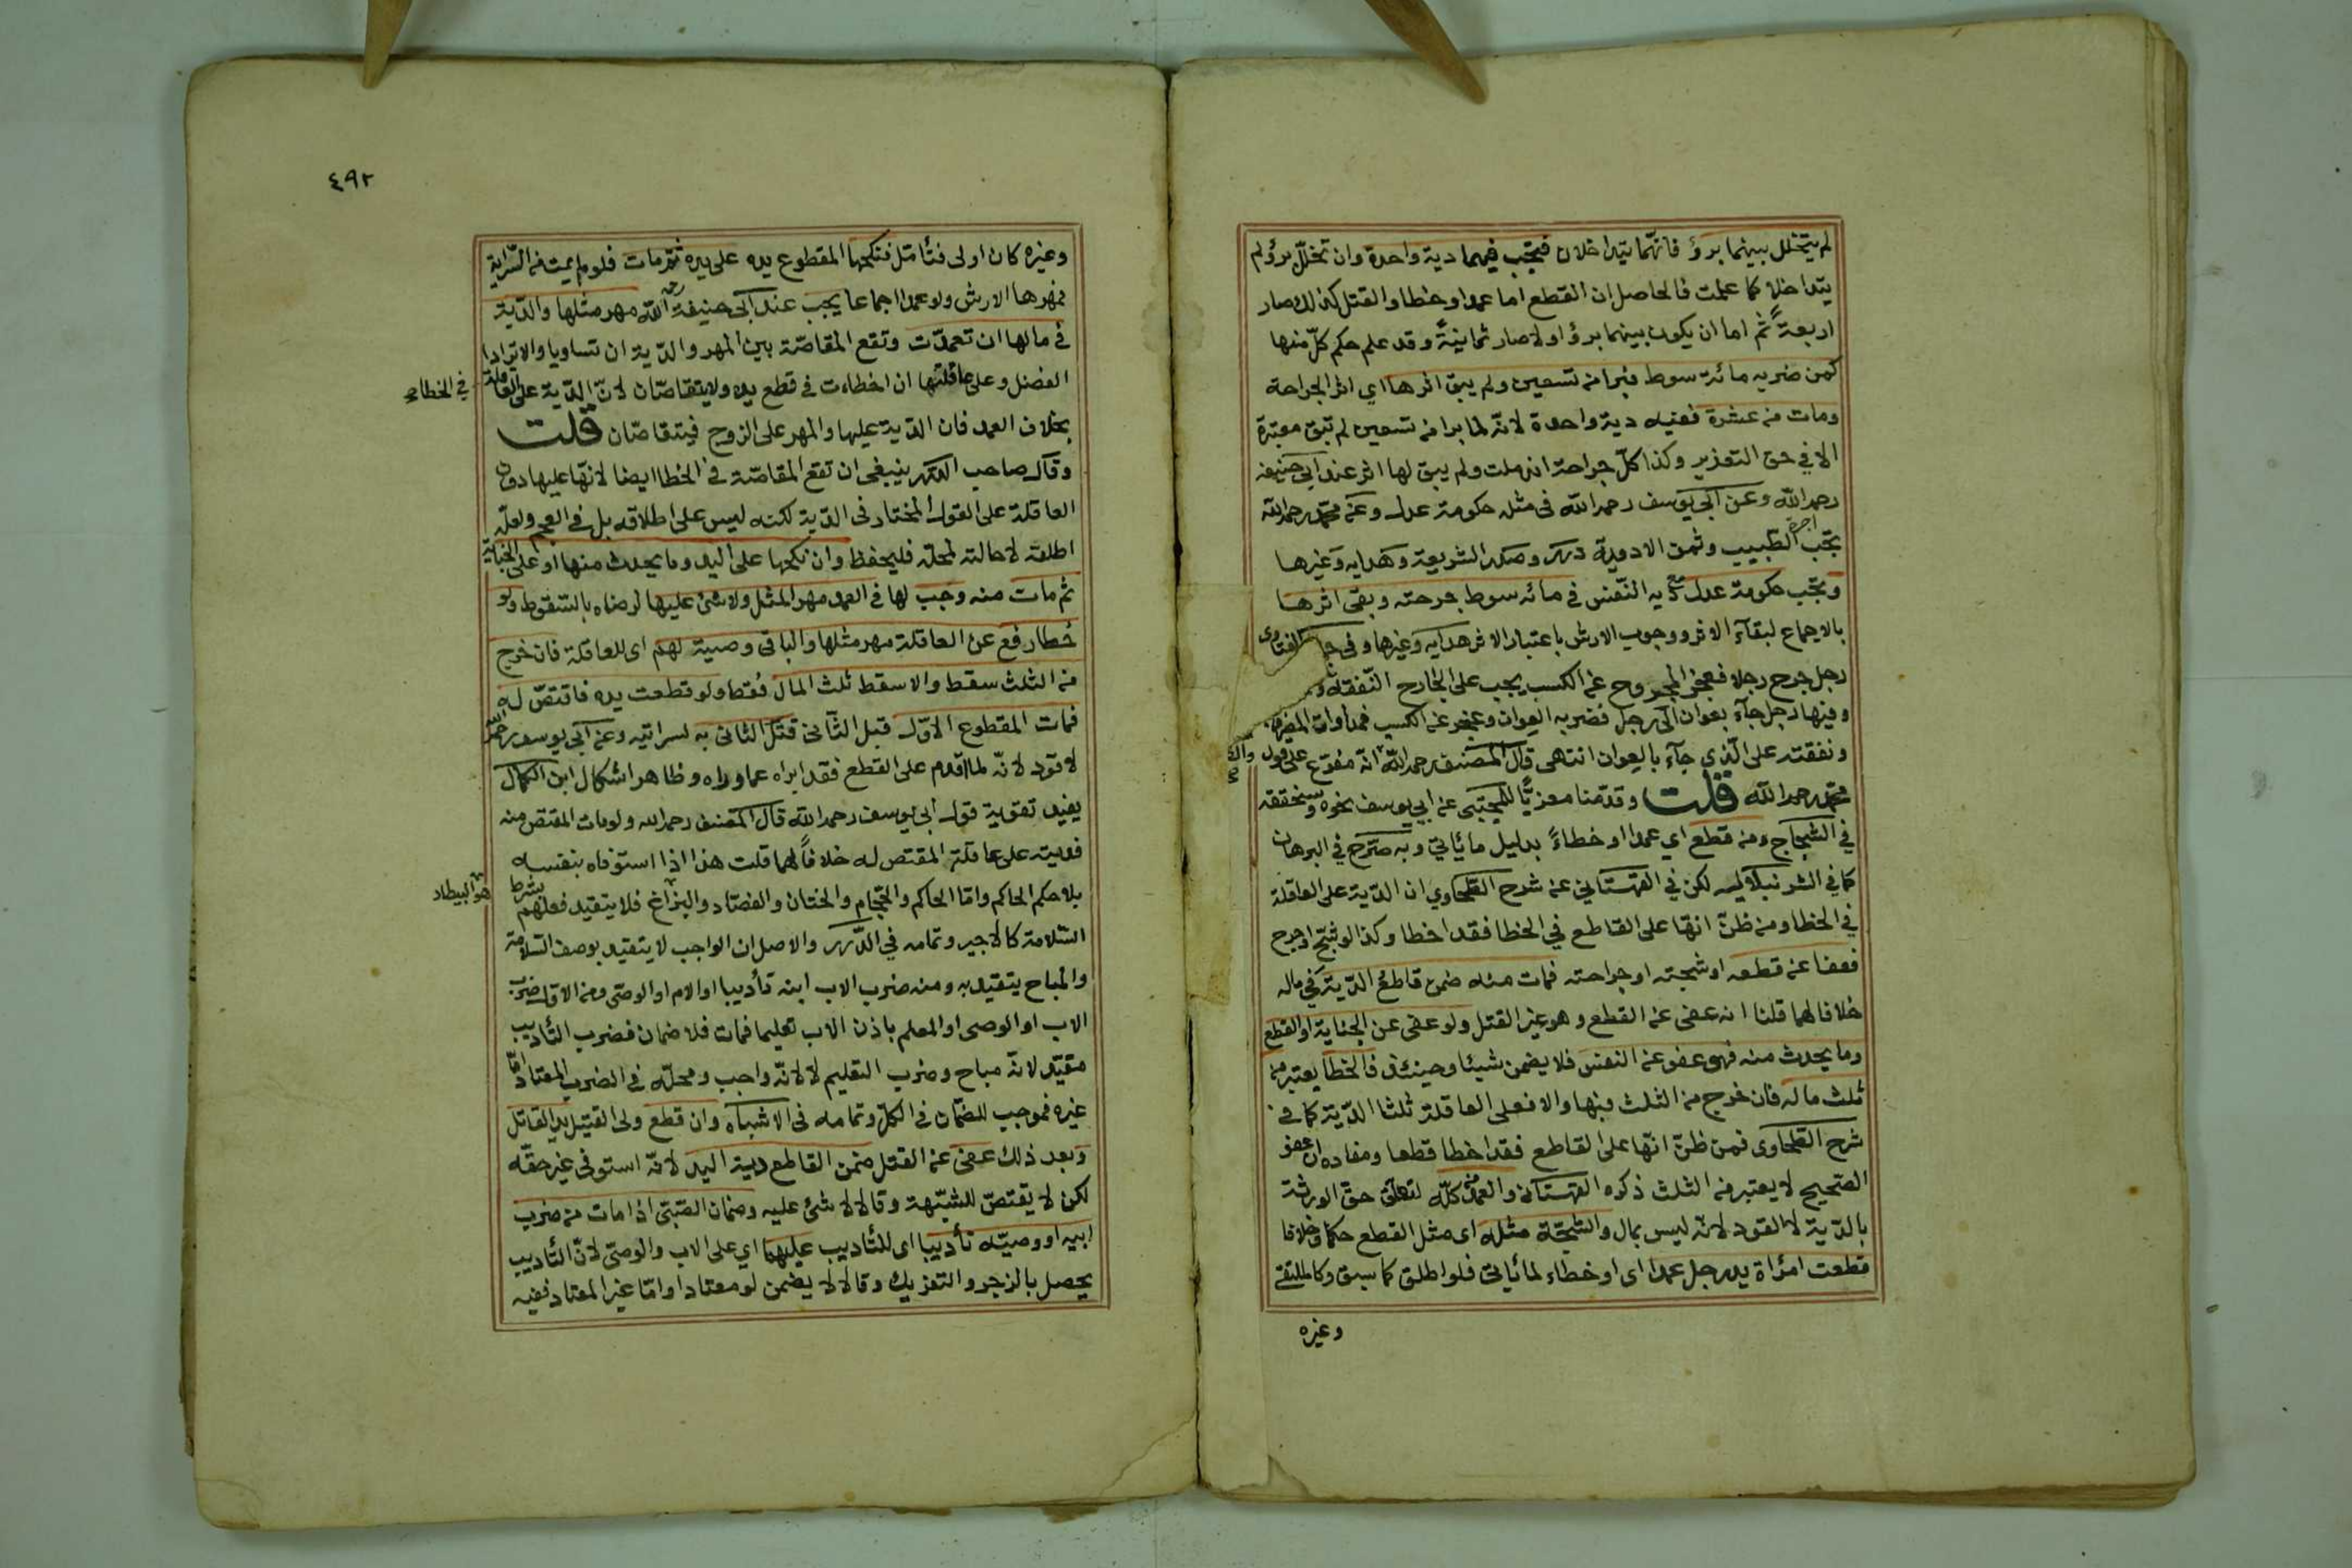 لم يتخلل بينهما برؤ فانهما يتداخلان فيجب فيهما دية واحدة وان تخلل برؤ لم
يتداخلا كما علمت فالحاصل ان القطع اما عمدا وخطا والقتل كذلك صار
اربعة ثم اما ان يكون بينهما برؤ اولا صار ثمانية وقد علم حكم كل منها
كمن ضربه مائة سوط فبرا من تسعين ولم يبق اثرها اي اثر الجراحة
ومات من عشرة ففيه دية واحدة لانه لما برا من تسعين لم تبق معتبرة
الا في حق التعزير وكذا كل جراحة اندملت ولم يبق لها اثر عند ابي حنيفه
رحمه الله وعن ابي يوسف رحمه الله في مثله حكومة عدل وعن محمد رحمه الله
تجب اجرة الطبيب وثمن الادوية درر وصدر الشريعة وهدايه وغيرها
وتجب حكومة عدل مع دية النفس في مائه سوط جرحته وبقى اثرها
بالاجماع لبقاء الاثر ووجوب الارش باعتبار الاثر هدايه وغيرها وفى الفتاوى
رجل جرح رجلا فعجز المجروح عن الكسب يجب على الجارح النفقة
وفيها رجل جاء بعوان الى رجل فضربه العوان وعجز عن الكسب فمداواة المضروب
ونفقته على الذي جاء بالعوان انتهى قال المصنف رحمه الله انه مفرع على قول
محمد رحمه الله قلت وقدمنا معزيا للمجتبى عن ابي يوسف نحوه وسنحققه
في الشجاج ومن قطع اي عمدا او خطاء بدليل ما ياتي وبه صرح في البرهان
كما في الشرنبلاليه لكن في القهستاني عن شرح الطحاوي ان الدية على العاقلة
في الخطا ومن ظن انها على القاطع في الخطا فقد اخطا وكذا لو شج او جرح
فعفا عن قطعه او شجته او جراحته فمات منه ضمن قاطع الدية في ماله
خلافا لهما قلنا انه عفى عن القطع وهو غير القتل ولو عفى عن الجناية او القطع
وما يحدث منه فهو عفو عن النفس فلا يضمن شيئا وحينئذ فالخطا يعتبر من
ثلث ماله فان خرج من الثلث فبها والا فعلى العاقلة ثلثا الدية كما في
شرح الطحاوى فمن ظن انها على القاطع فقد اخطا قطعا ومفاده ان عفو
الصحيح لا يعتبر من الثلث ذكره القهستانى والعمد من كله لتعلق حق الورثة
بالدية لا القود لانه ليس بمال والشجة مثله اى مثل القطع حكما وخلافا
قطعت امرأة يد رجل عمدا اى او خطاء لما ياتى فلو اطلق كما سبق وكالملتقى
وغيره
٤٩٢
وغيره كان اولى فتأمل فنكحها المقطوع يده على يده ثم مات فلو لم يمت من السراية
فمهرها الارش ولو عمدا اجماعا يجب عند ابى حنيفة رحمه الله مهر مثلها والدية
في مالها ان تعمدت وتقع المقاصة بين المهر والدية ان تساويا والا ترادا
الفضل وعلى عاقلتها ان اخطاءت في قطع يده ولا يتقاصان لان الدية على العاقلة
في الخطاء
بخلاف العمد فان الدية عليها والمهر على الزوج فيتقاصان قلت
وقال صاحب الدرر ينبغى ان تقع المقاصة في الخطا ايضا لانها عليها دون
العاقلة على القول المختار فى الدية لكنه ليس على اطلاقه بل في العجم ولعله
اطلقه لاحالته لمحله فليحفظ وان نكحها على اليد وما يحدث منها او على الجناية
ثم مات منه وجب لها فى العمد مهر المثل ولا شئ عليها لرضاه بالسقوط ولو
خطا رفع عن العاقلة مهر مثلها والباقى وصية لهم اى للعاقلة فان خرج
من الثلث سقط والا سقط ثلث المال فقط ولو قطعت يده فاقتص له
فمات المقطوع الاول قبل الثانى قتل الثانى به لسرايته وعن ابى يوسف رحمه الله
لا قود لانه لما اقدم على القطع فقد ابراه عما وراه وظاهر اشكال ابن الكمال
يفيد تقوية قول ابى يوسف رحمه الله قال المصنف رحمه الله ولو مات المقتص منه
فديته على عاقلة المقتص له خلافا لهما قلت هذا اذا استوفاه بنفسه
بلا حكم الحاكم واما الحاكم والحجام والختان والفصاد والبزاغ فلا يتقيد فعلهم بشرط
هو البيطار
السلامة كالاجير وتمامه في الدرر والاصل ان الواجب لا يتقيد بوصف السلامة
والمباح يتقيد به ومنه ضرب الاب ابنه تأديبا او الام او الوصى ومن الاول ضرب
الاب او الوصى او المعلم باذن الاب تعليما فمات فلا ضمان فضرب التأديب
مقيد لانه مباح وضرب التعليم لا لانه واجب ومحله في الضرب المعتاد اما
غيره فموجب للضمان في الكل وتمامه فى الاشباه وان قطع ولى القتيل يد القاتل
وبعد ذلك عفى عن القتل ضمن القاطع دية اليد لانه استوفى غير حقه
لكن لا يقتص للشبهة وقالا لا شئ عليه وضمان الصبى اذا مات من ضرب
ابيه او وصيه تأديبا اى للتأديب عليهما اي على الاب والوصى لان التأديب
يحصل بالزجر والتعزيك وقالا لا يضمن لو معتادا واما غير المعتاد ففيه